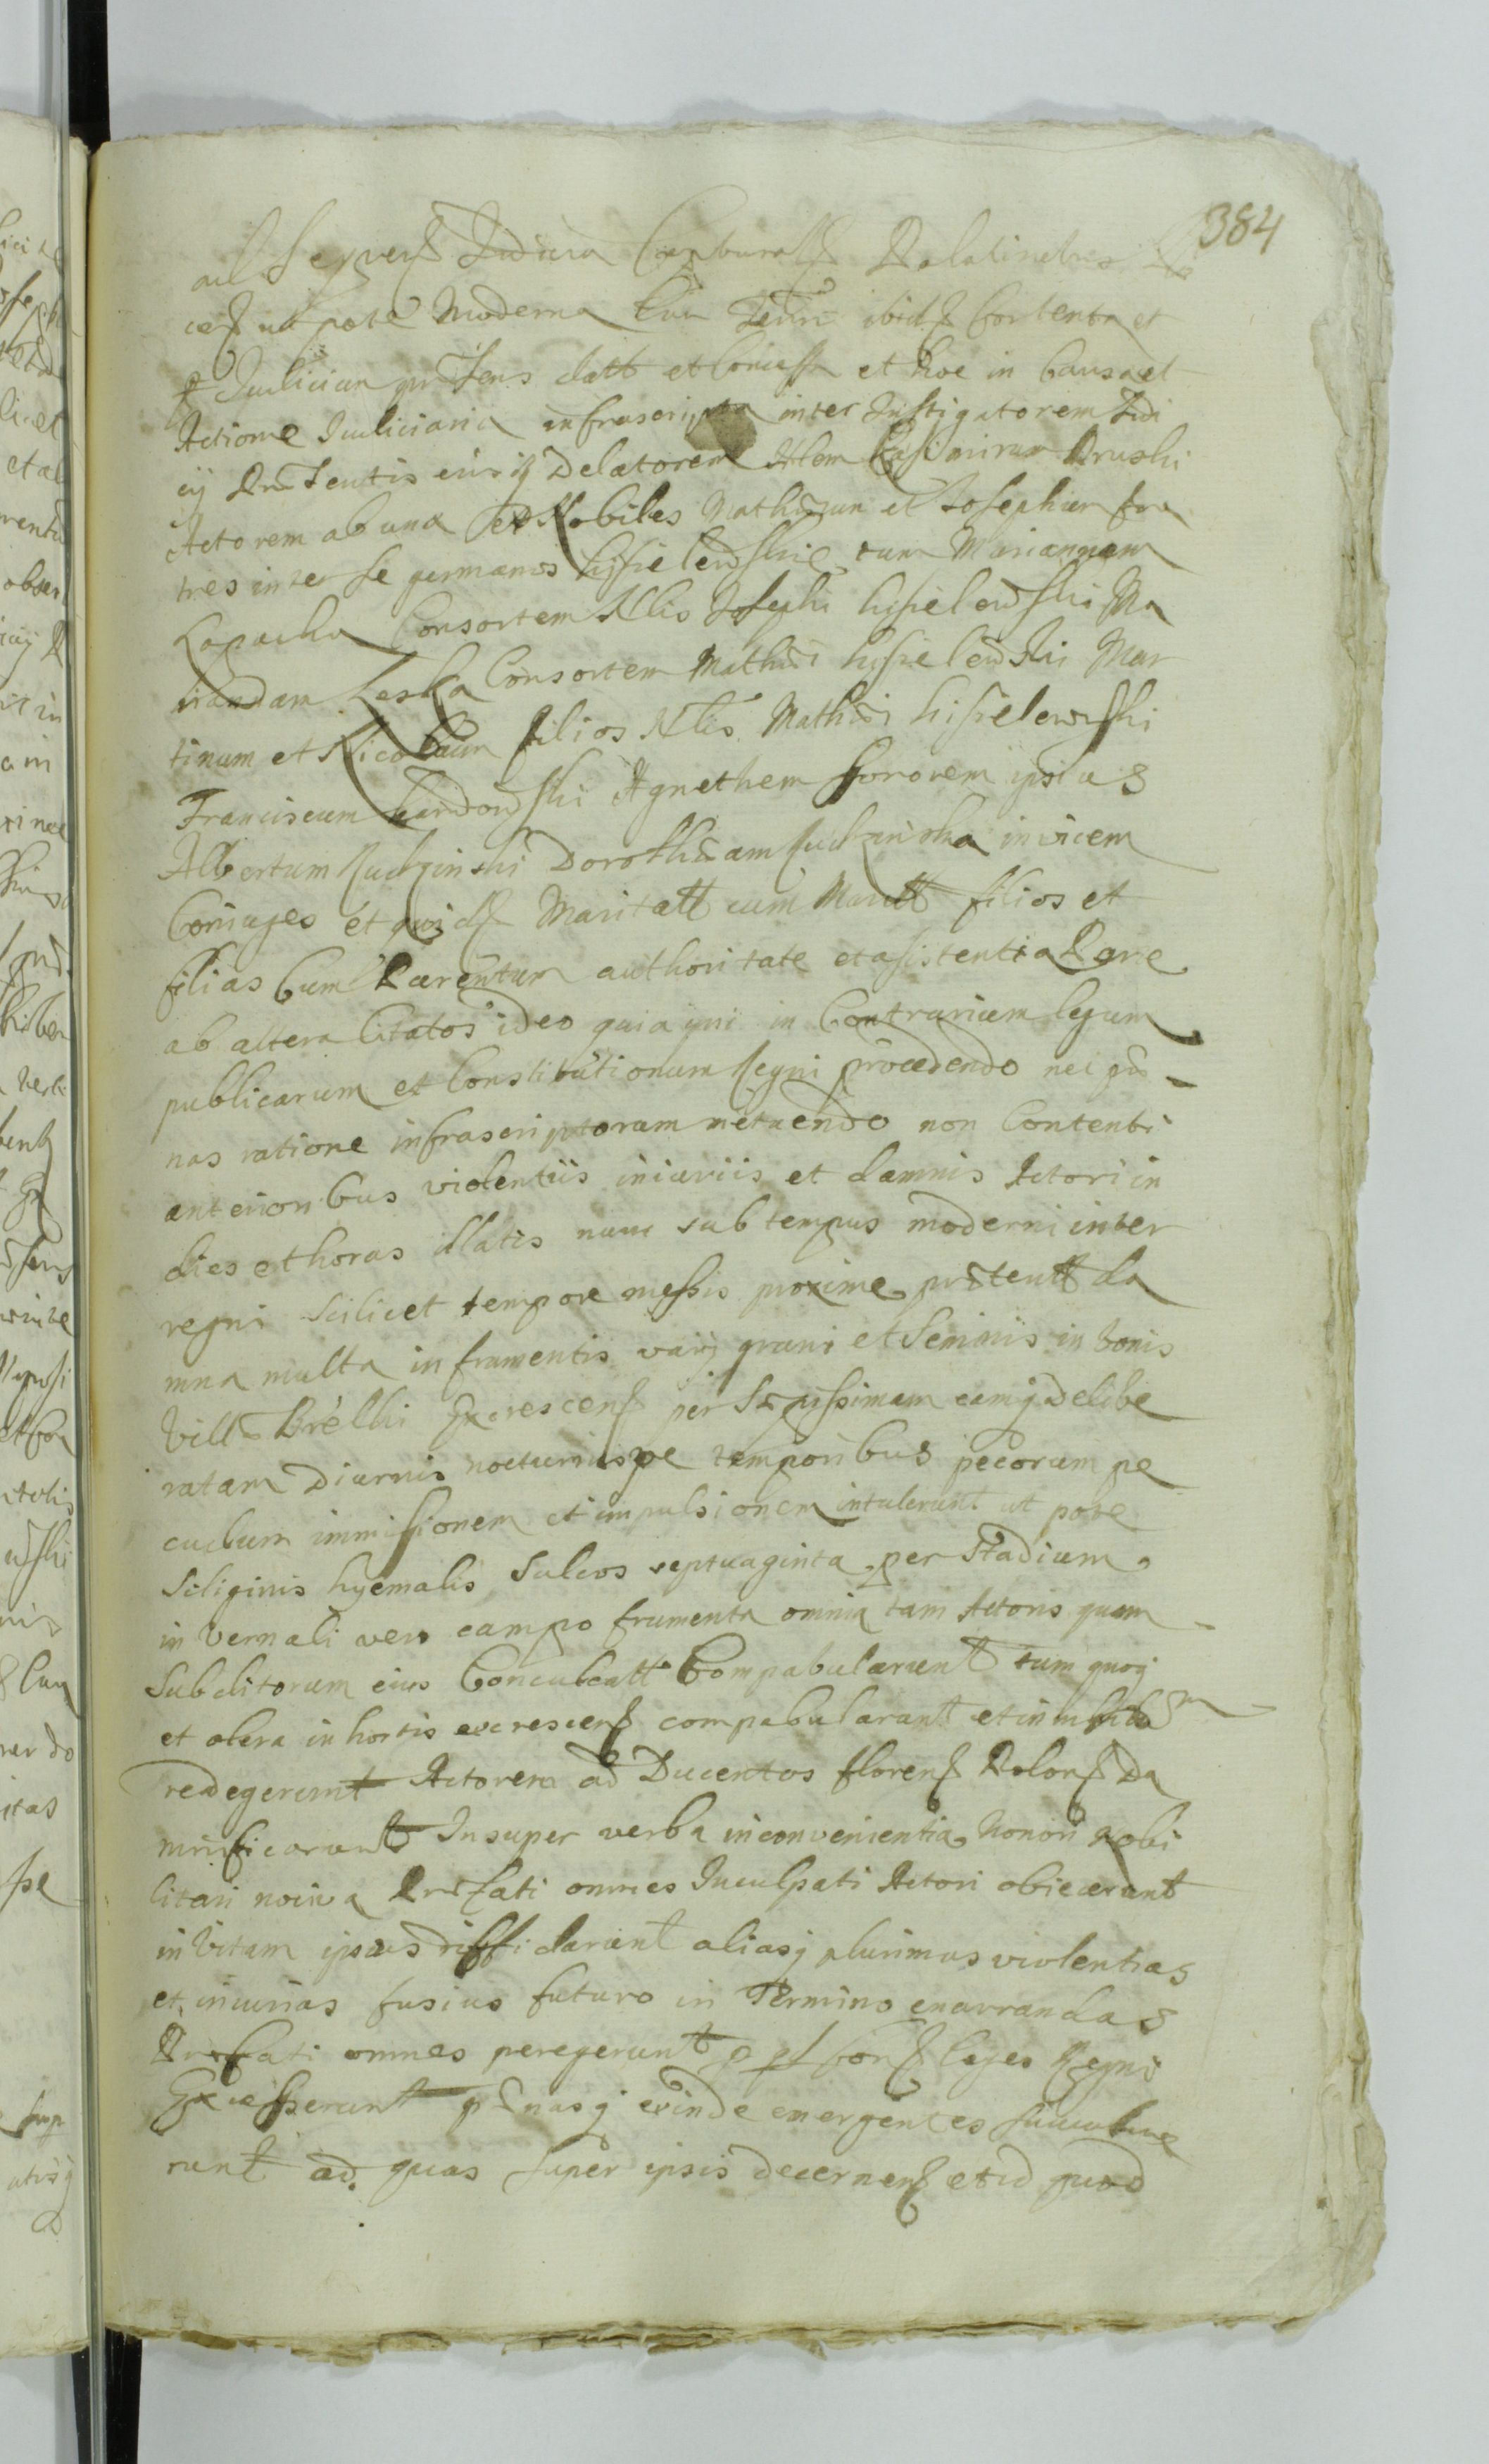 384
ad Judicia Capturalia Palatinatus
utpote Moderna Cum ibid
Judicium prntens datt et et hoc in Causa et
Actione Judiciaria infrascripta inter Instigatorem Judi
cij Prntentis eiusq Delatorem Nlem Casimirum Pruski
Actorem ab una et Nobiles Mathiam et Josephum fra
tres inter se germanos tum Mariannam
Consortem Nlis Josephi Kisielewski Ma
Consortem Mathiae Kisielewski Mar
tinum et Nicolaum filios Nlis Mathiae Kisielewski
Franciscum Agnethem Sororem ipsius
Albertum Dorotheam invicem
Coniuges et quid Maritatt cum Maritt filios et
filias Cum Parentum authoritate et assistentia
ab altera Citatos ideo quia ipsi in Contrarium legum
publicarum et Constitutionum Regni procedendo nec pae
nas ratione infrascriptorum metuendo non Contenti
anterioribus violentiis iniuriis et damnis Actori in
dies et horas illatis nunc sub tempus moderni inter
regni scilicet tempore messis proxime prteritt da
mna multa in frumentis varij grani et Seminis in bonis
Villae Excrescen per Saepissimam eamq delibe
ratam Diurnis nocturnisqe temporibus pecorum pe
cudum immissionem et impulsionem intulerunt ut pote
Siliginis hyemalis Sulcos septuaginta per Stadium
in Vernali vero campo frumenta omnia tam Actoris quam
Subditorum eius Conculcatt Compabularunt tum quoq
et olera in hortis excrescen compabularunt et in nihilum
redegerunt Actorem ad Ducentos floren Polon Da
mnificarunt Insuper verba inconvenientia honori Nobi
litari nociva Praefati omnes Inculpati Actori obiecerunt
in Vitam ipsius diffidarunt aliasq plurimas violentias
et iniurias fusius futuro in Termino enarrandas
Praefati omnes peregerunt leges Regni
Excesserunt paenasq exinde emergentes succubue
runt ad quas super ipsis decernen et id quod